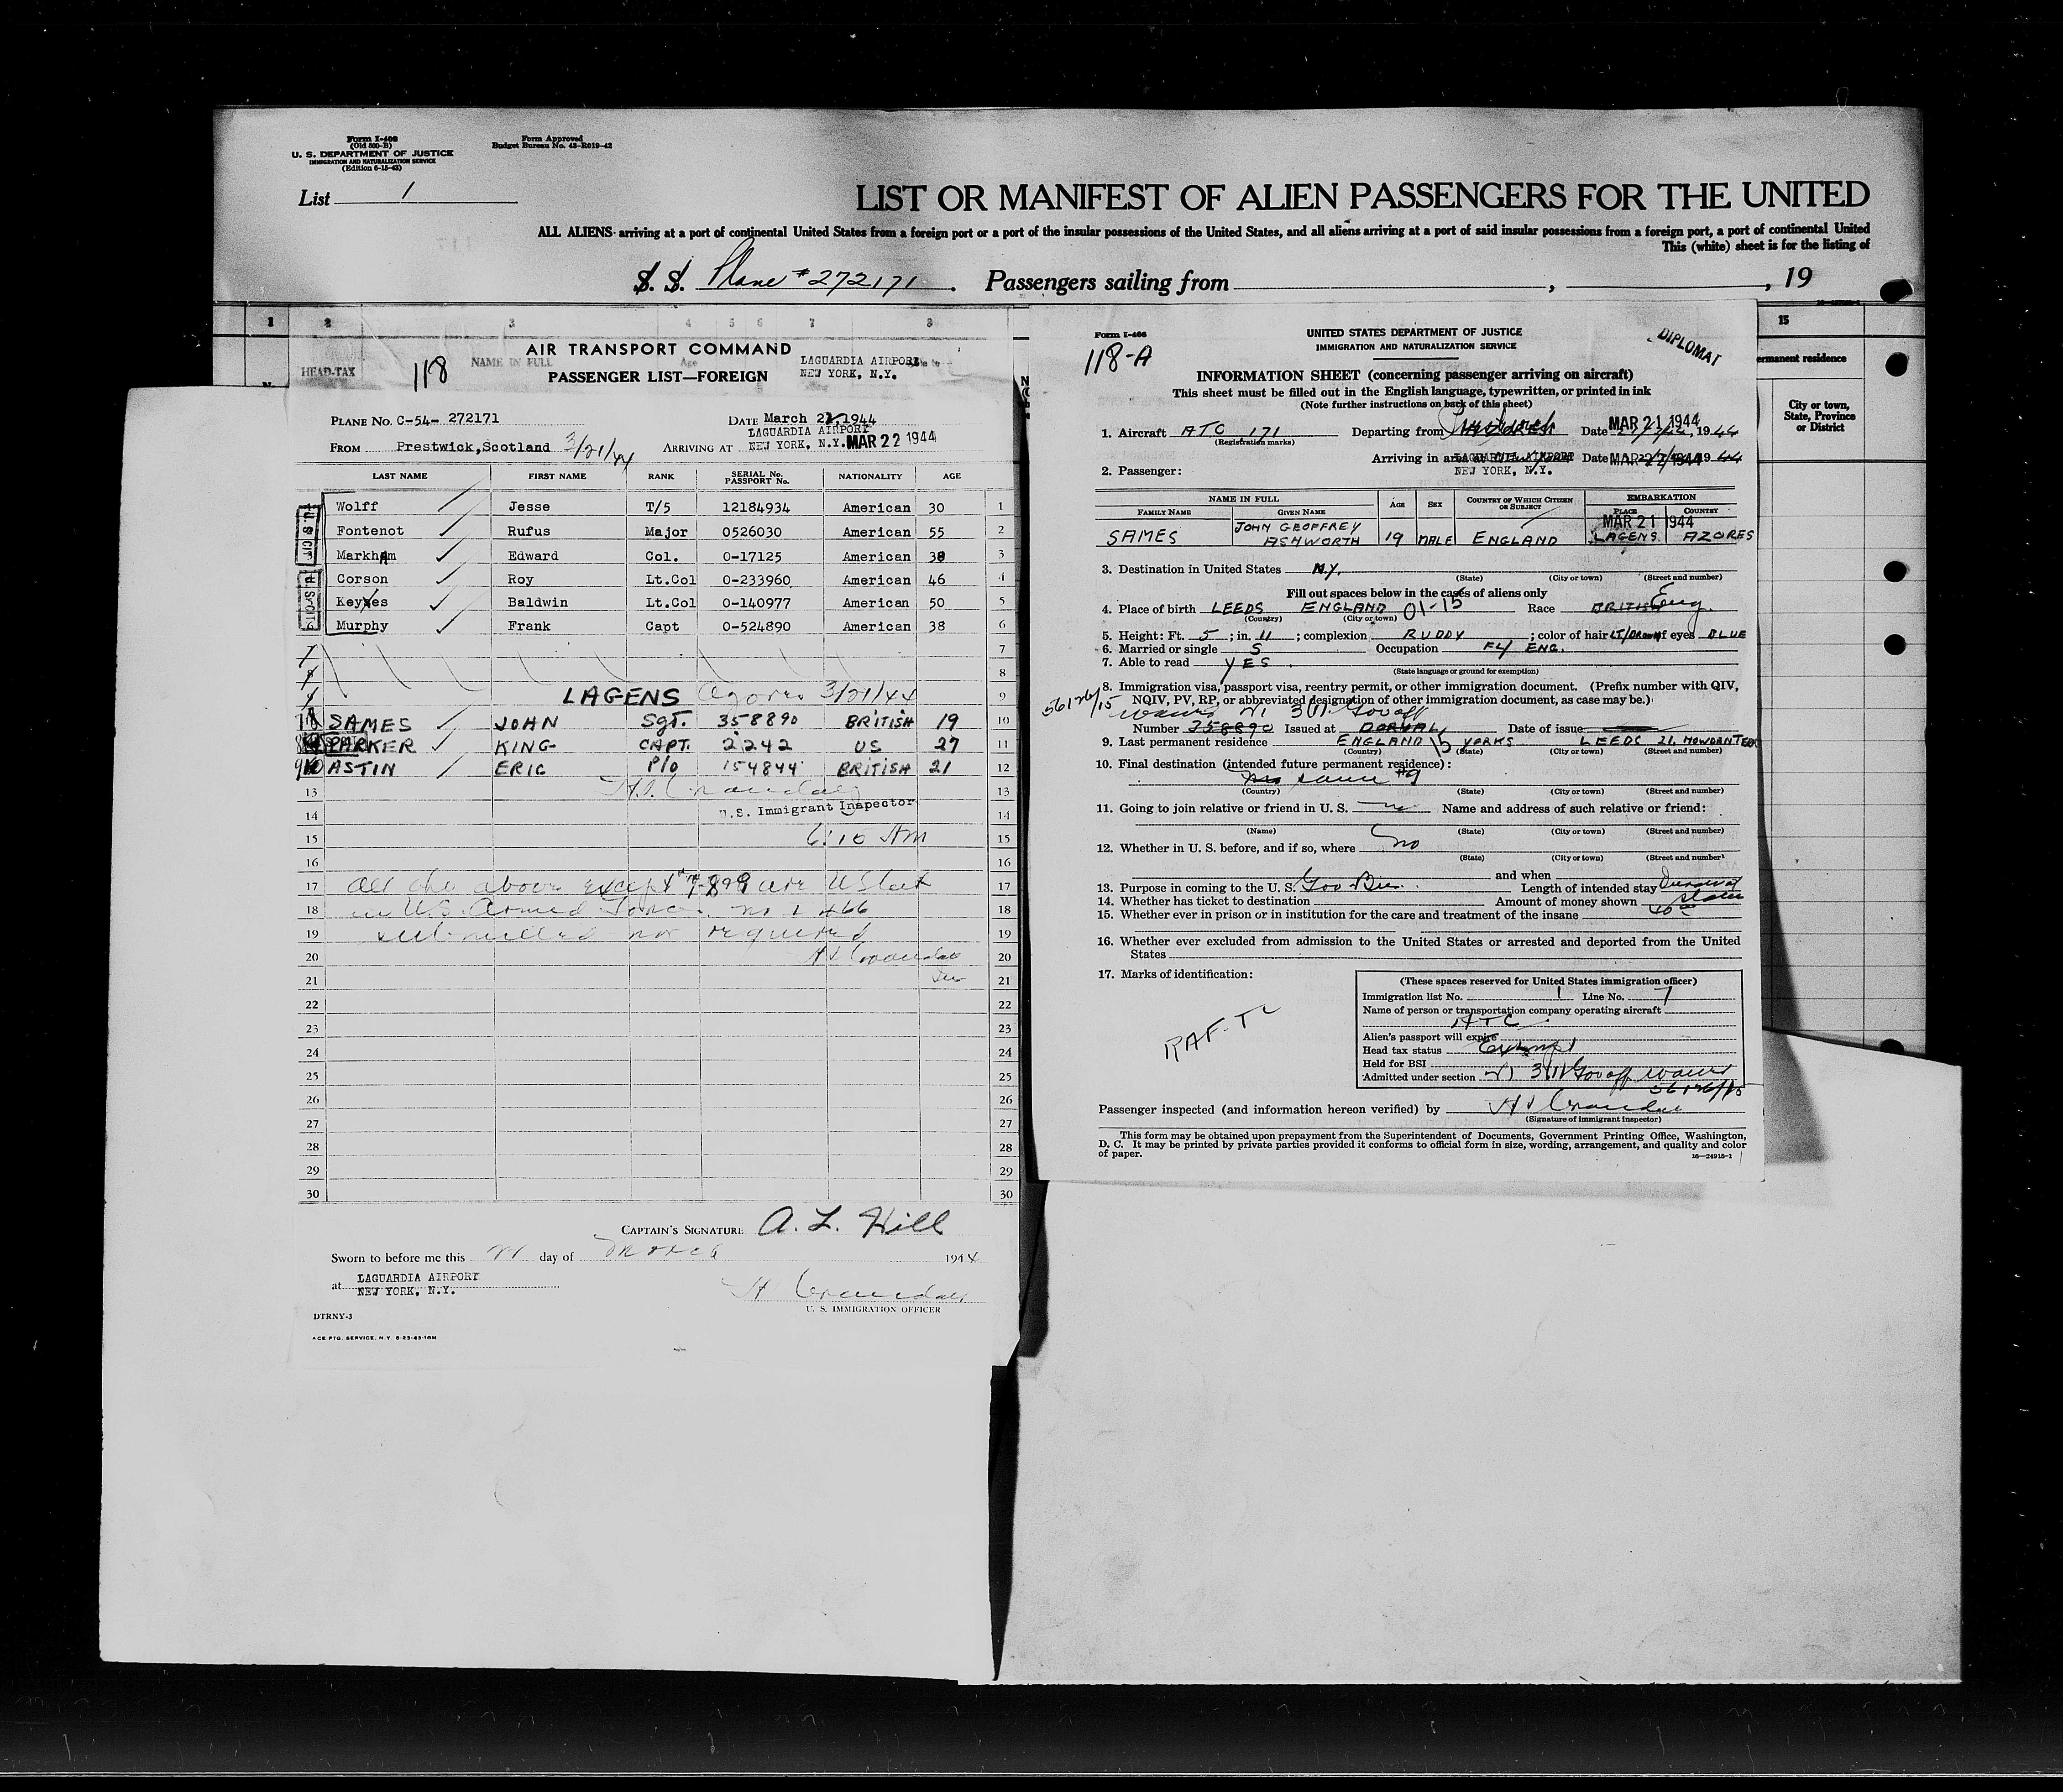 Form I-466
(Old 500-B)
U. S. DEPARTMENT OF JUSTICE
IMMIGRATION AND NATURALIZATION SERVICE
(Edition 6-15-43)
Form Approved
Budget Bureau No. 43-R019-42
List 1
LIST OR MANIFEST OF ALIEN PASSENGERS FOR THE UNITED
ALL ALIENS arriving at a port of continental United States from a foreign port or a port of the insular possessions of the United States, and all aliens arriving at a port of said insular possessions from a foreign port, a port of continental United
This (white) sheet is for the listing of
S. S. Plane #272171. Passengers sailing from , , 19
1 2 3 4 5 6 7 8
HEAD-TAX
NAME IN FULL
Age
118
AIR TRANSPORT COMMAND
PASSENGER LIST—FOREIGN
LAGUARDIA AIRPORT
NEW YORK, N.Y.
PLANE NO. C-54- 272171 DATE March 22, 1944
FROM Prestwick, Scotland 3/21/44 ARRIVING AT LAGUARDIA AIRPORT NEW YORK, N.Y. MAR 22 1944
LAST NAME FIRST NAME RANK SERIAL No. PASSPORT No. NATIONALITY AGE
Wolff Jesse T/5 12184934 American 30 1
Fontenot Rufus Major 0526030 American 55 2
Markham Edward Col. 0-17125 American 38 3
Corson Roy Lt.Col 0-233960 American 46 4
Keyes Baldwin Lt.Col 0-140977 American 50 5
Murphy Frank Capt 0-524890 American 38 6
7 7
8 8
9 LAGENS Azores 3/21/44 9
SAMES JOHN Sgt. 358890 BRITISH 19 10
PARKER KING CAPT. 2242 US 27 11
ASTIN ERIC P/O 154844 BRITISH 21 12
13 13
14 U.S. Immigrant Inspector 14
15 6:10 AM 15
16 16
17 All the above except are 17
18 in U.S. Armed Forces no I 466 18
19 submitted nor required 19
20 20
21 21
22 22
23 23
24 24
25 25
26 26
27 27
28 28
29 29
30 30
CAPTAIN'S SIGNATURE A. L. Hill
Sworn to before me this day of March 1944
at LAGUARDIA AIRPORT
NEW YORK, N.Y.
U. S. IMMIGRATION OFFICER
DTRNY-3
ACE PTG. SERVICE, N.Y. 8-23-43-10M
Form I-466
118-A
UNITED STATES DEPARTMENT OF JUSTICE
IMMIGRATION AND NATURALIZATION SERVICE
DIPLOMAT
INFORMATION SHEET (concerning passenger arriving on aircraft)
This sheet must be filled out in the English language, typewritten, or printed in ink
(Note further instructions on back of this sheet)
1. Aircraft ATC 171 Departing from Date MAR 21 1944, 1944
(Registration marks)
Arriving in area at LAGUARDIA AIRPORT Date MAR 22 1944 1944
NEW YORK, N.Y.
2. Passenger:
NAME IN FULL AGE SEX COUNTRY OF WHICH CITIZEN OR SUBJECT EMBARKATION
FAMILY NAME GIVEN NAME PLACE COUNTRY
MAR 21 1944
SAMES JOHN GEOFFREY ASHWORTH 19 MALE ENGLAND LAGENS AZORES
3. Destination in United States N.Y.
(State) (City or town) (Street and number)
Fill out spaces below in the cases of aliens only
4. Place of birth LEEDS ENGLAND 01-15 Race BRITISH Eng.
(Country) (City or town)
5. Height: Ft. 5; in. 11; complexion RUDDY; color of hair LT/BROWN of eyes BLUE
6. Married or single S Occupation F/ ENG.
7. Able to read YES.
(State language or ground for exemption)
8. Immigration visa, passport visa, reentry permit, or other immigration document. (Prefix number with QIV,
NQIV, PV, RP, or abbreviated designation of other immigration document, as case may be.)
56126/15
3(1) Gov off
Number 358890 Issued at DORVAL Date of issue
9. Last permanent residence ENGLAND 15 YORKS LEEDS 21,
(Country) (State) (City or town) (Street and number)
10. Final destination (intended future permanent residence):
same #9
(Country) (State) (City or town) (Street and number)
11. Going to join relative or friend in U. S. no Name and address of such relative or friend:
(Name) (State) (City or town) (Street and number)
12. Whether in U. S. before, and if so, where no
(State) (City or town) (Street and number)
and when
13. Purpose in coming to the U. S. Gov Bus. Length of intended stay
14. Whether has ticket to destination Amount of money shown
15. Whether ever in prison or in institution for the care and treatment of the insane
16. Whether ever excluded from admission to the United States or arrested and deported from the United
States
17. Marks of identification:
(These spaces reserved for United States immigration officer)
Immigration list No. 1 Line No. 7
Name of person or transportation company operating aircraft
ATC
Alien's passport will expire
Head tax status Exempt
Held for BSI
Admitted under section 3(1) Gov off
56126/15
RAF-TC
Passenger inspected (and information hereon verified) by
(Signature of immigrant inspector)
This form may be obtained upon prepayment from the Superintendent of Documents, Government Printing Office, Washington,
D. C. It may be printed by private parties provided it conforms to official form in size, wording, arrangement, and quality and color
of paper.
16—24915-1
15
ermanent residence
City or town,
State, Province
or District